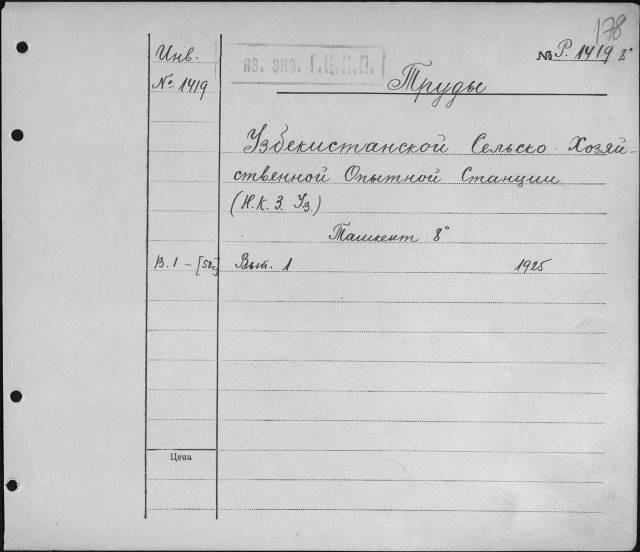 178
Инв.
№ 1419
яз. экз. Г.Ц.К.П.
№ Р. 1419 8°
Труды
Узбекистанской Сельско Хозяй-
ственной Опытной Станции
(Н.К.З. Уз.)
Ташкент 8°
В. 1 – [50к]
Вып. 1 1925
Цена